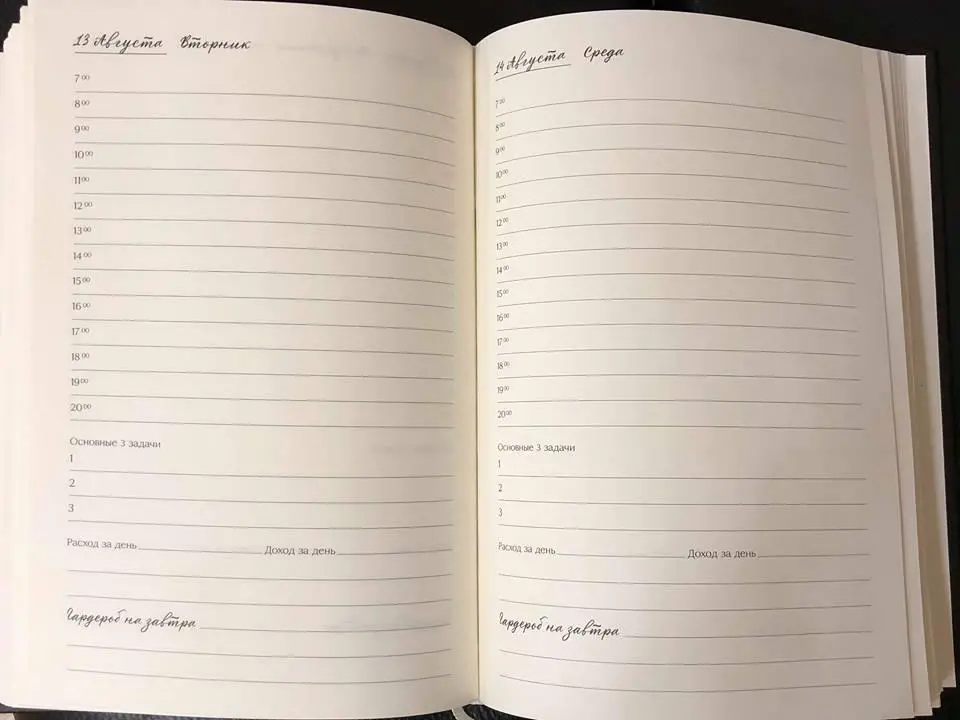 13 Августа Вторник
7 00
8 00
9 00
10 00
11 00
12 00
13 00
14 00
15 00
16 00
17 00
18 00
19 00
20 00
Основные 3 задачи
1
2
3
Расход за день Доход за день
Гардероб на завтра
14 Августа Среда
7 00
8 00
9 00
10 00
11 00
12 00
13 00
14 00
15 00
16 00
17 00
18 00
19 00
20 00
Основные 3 задачи
1
2
3
Расход за день Доход за день
Гардероб на завтра